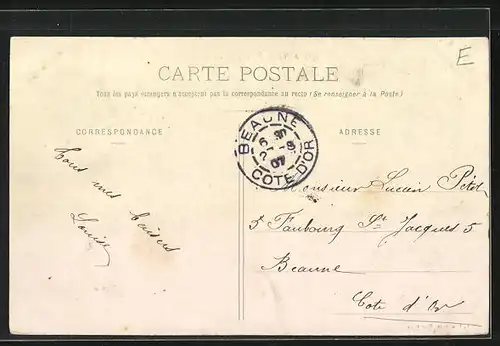 E
CARTE POSTALE
Tous les pays étrangers n'acceptent pas la correspondance au recto (Se renseigner à la Poste)
CORRESPONDANCE
ADRESSE
BEAUNE
27-9
07
COTE-D'OR
Tous mes baisers
Louise
Monsieur Lucien Petot
5 Faubourg St Jacques 5
Beaune
Cote d'Or